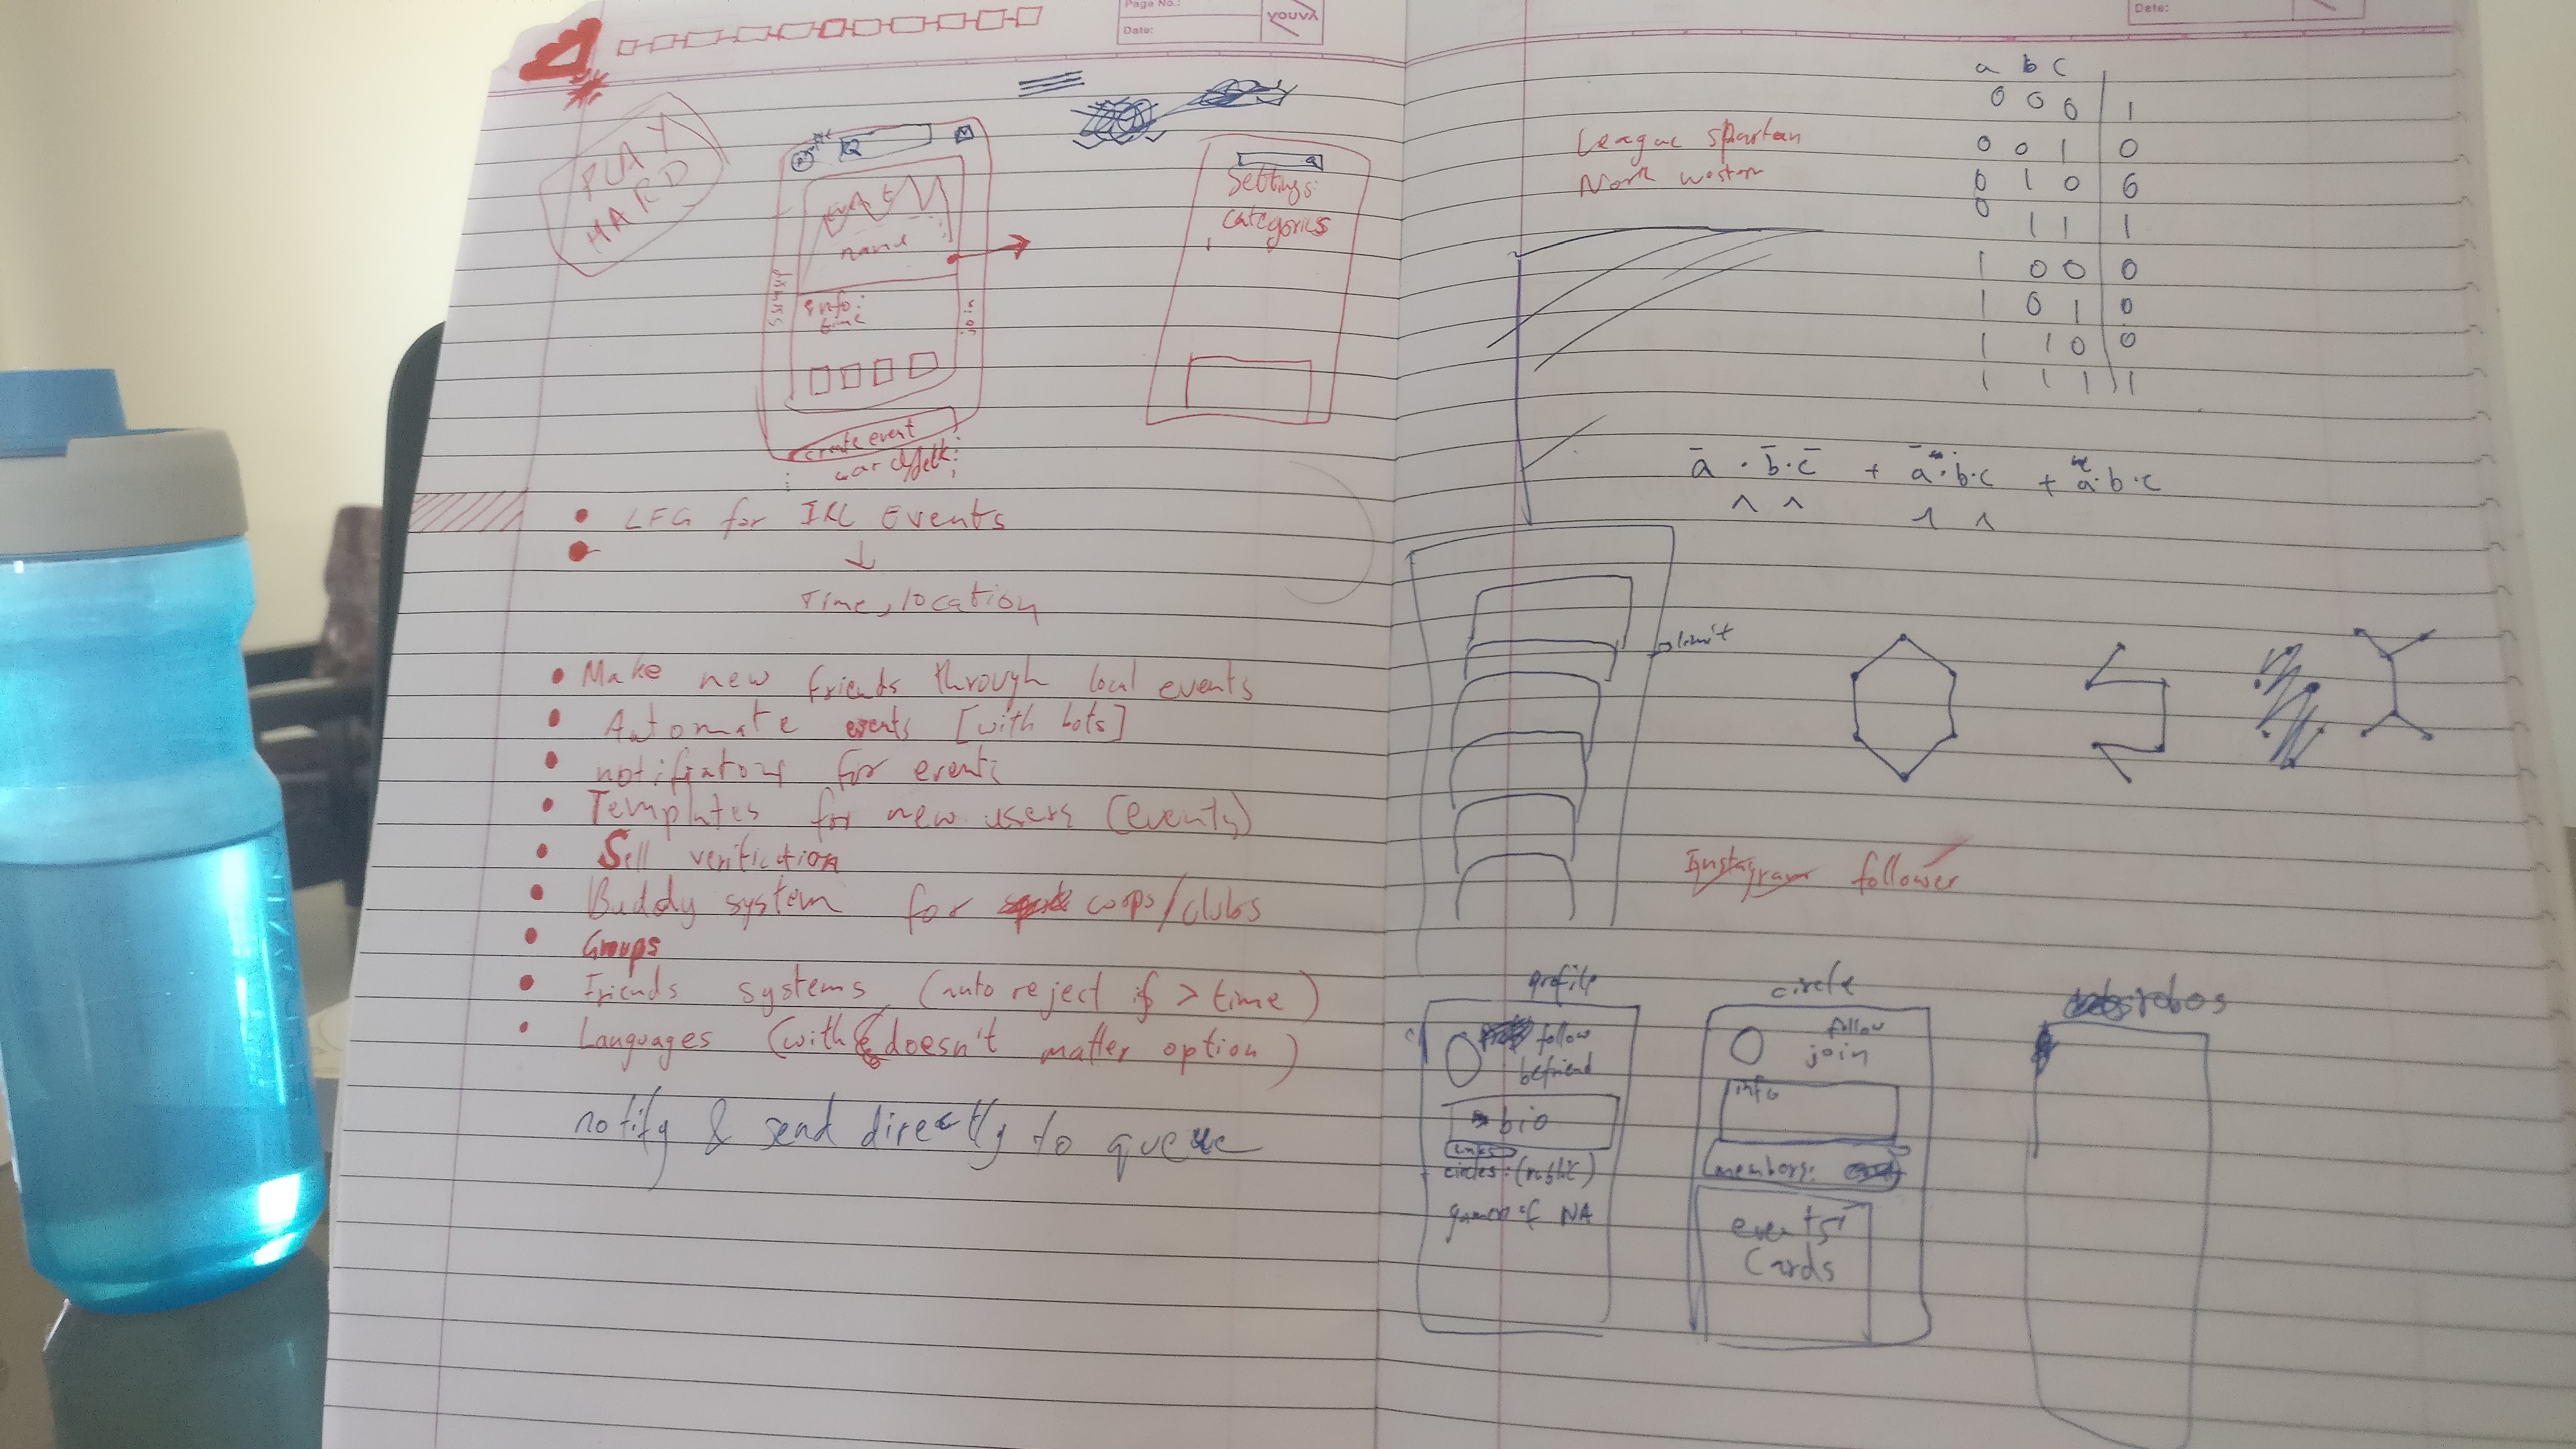 Page No.:
Date:
YOUVA
Date:
PLAY
HARD
name
info:
time
join
create event
Settings:
categories
LFG for IRL Events
Time, location
Make new friends through local events
Automate events [with bots]
notifiations for events
Templates for new users (events)
Sell verifiction
Buddy system for coops/clubs
Groups
Friends systems (auto reject if > time)
Languages (with doesn't matter option)
notify & send directly to queue
League Spartan
North western
a b c
0 0 0 1
0 0 1 0
0 1 0 0
0 1 1 1
1 0 0 0
1 0 1 0
1 1 0 0
1 1 1 1
ā · b̄ · c̄ + ā · b · c + a · b · c
limit
Instagram follower
profile
follow
befriend
bio
links
circles: (public)
if NA
circle
follow
join
info
members:
events
Cards